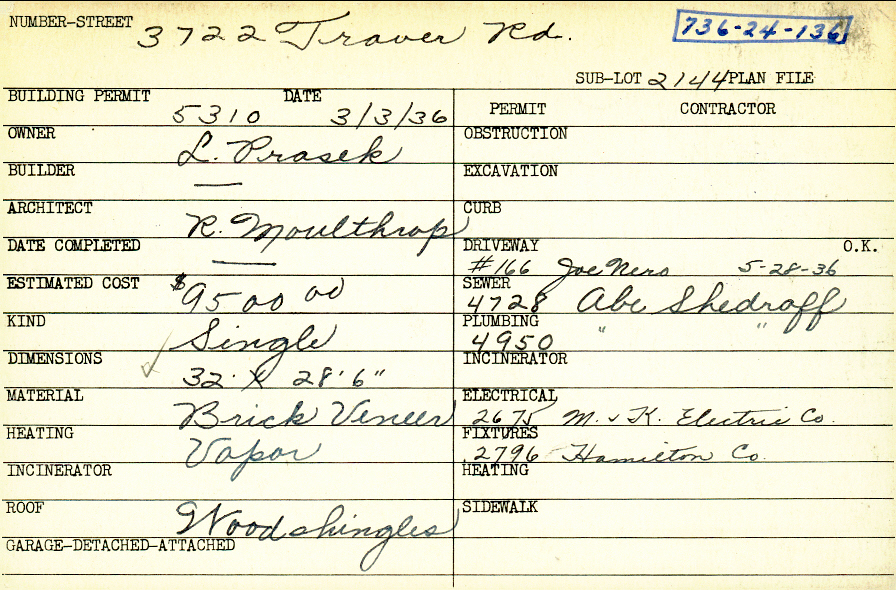 NUMBER-STREET 3722 Traver Rd. 736-24-136
SUB-LOT 2144 PLAN FILE
BUILDING PERMIT 5310 DATE 3/3/36
PERMIT CONTRACTOR
OWNER L. Prasek
OBSTRUCTION
BUILDER —
EXCAVATION
ARCHITECT R. Moulthrop
CURB
DATE COMPLETED —
DRIVEWAY #166 Joe Nero 5-28-36 O.K.
ESTIMATED COST $9500 00
SEWER 4728 Abe Shedroff
KIND Single
PLUMBING 4950 " "
DIMENSIONS 32' X 28'6"
INCINERATOR
MATERIAL Brick Veneer
ELECTRICAL 2675 M. & K. Electric Co.
HEATING Vapor
FIXTURES 2796 Hamilton Co.
INCINERATOR
HEATING
ROOF Wood shingles
SIDEWALK
GARAGE-DETACHED-ATTACHED